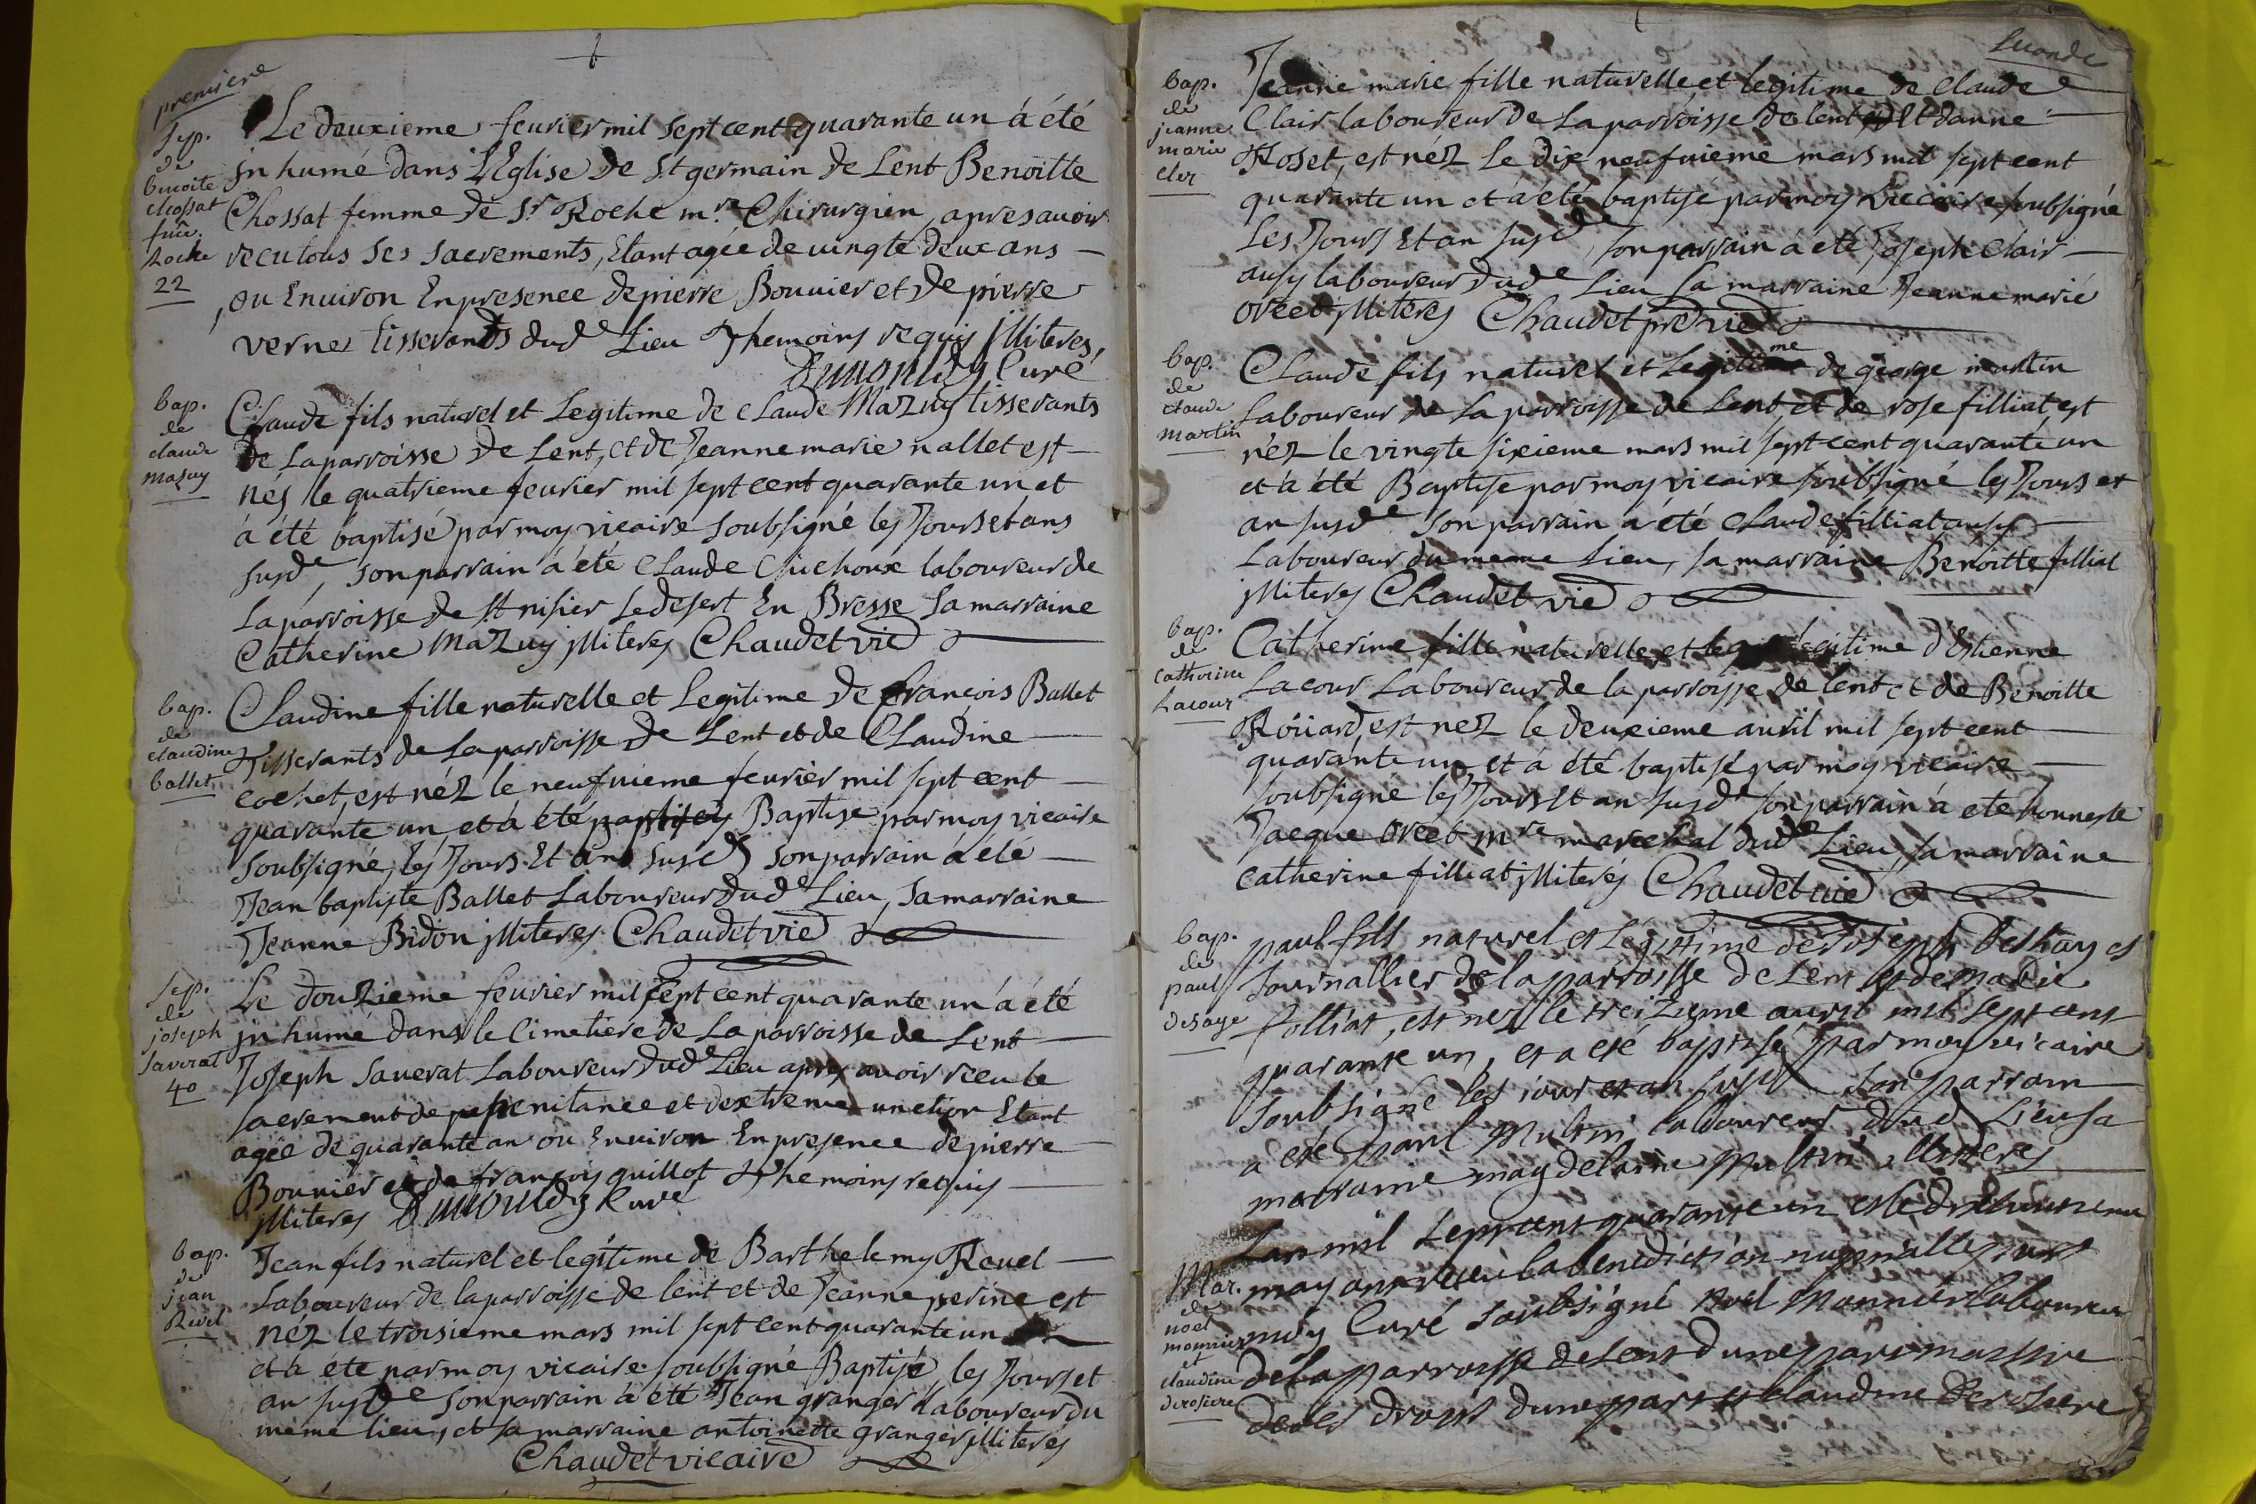 premiere
Sep.
de
benoite
chossat
fme.
Roche
22
Le deuxieme feurier mil sept cent quarante un à été
jnhumé dans L'Eglise de St germain de Lent Benoitte
Chossat femme de Sr Roche mre Chirurgien, apres auoir
recu tous ses sacrements, Etant agée de vingte deux ans
, ou Enuiron En presence de pierre Bouuier et de pierre
verne tisserants dude Lieu Themoins requis jlliteres,
Curé
bap.
de
claude
mazuy
Claude fils naturel et Legitime de Claude Mazuy tisserants
de La parroisse de Lent, et de Jeanne marie nallet est
nés le quatrieme feurier mil sept cent quarante un et
à été baptisé par moy vicaire soubsigné les Jours et ans
susde, son parrain à été Claude Chichoux laboureur de
La parroisse de St nisier le desert En Bresse sa marraine
Catherine Mazuy jlliteres Chaudet vic
bap.
de
claudine
ballet
Claudine fille naturelle et Legitime de francois Ballet
Tisserants de La parroisse de Lent et de Claudine
cochet, est néz le neufuieme feurier mil sept cent
quarante un et à été Baptisé par moy vicaire
soubsigné, les Jours Et an susd son parrain à été
Jean baptiste Ballet Laboureur dude Lieu, sa marraine
Jeanne Bidon jlliteres Chaudet vic
Sep.
de
joseph
Saverat
40
Le douzieme feurier mil sept cent quarante un à été
jnhumé dans le Cimetiere de La parroisse de Lent
Joseph Sauerat Laboureur dude Lieu apres auoir receu le
sacrement de penitance et dextreme unction Etant
agée de quarante an ou Enuiron En presence de pierre
Bouuier et de francois guillot Themoins requis
jlliteres Curé
bap.
de
jean
Revel
Jean fils naturel et legitime de Barthelemy Reuel
Laboureur de la parroisse de lent et de Jeanne perine est
néz le troisieme mars mil sept cent quarante un
et à été par moy vicaire soubsigné Baptisé les Jours et
an susde son parrain à été Jean granger laboureur du
meme lieu, et sa marraine antoinette granger jlliteres
Chaudet vicaire
Seconde
bap.
de
jeanne
marie
cler
Jeanne marie fille naturelle et legitime de Claude
Clair laboureur de La parroisse de lent Et danne
Roset, est néz le dix neufuieme mars mil sept cent
quarante un et à été baptisé par moy Viccaire soubsigné
Les Jours Et an susde, son parrain à été Joseph Clair
ausy laboureur dude Lieu sa marraine Jeanne marie
orcet jlliteres Chaudet pre vic
bap.
de
claude
martin
Claude fils naturel et Legitime de george martin
Laboureur de La parroisse de Lent, et de rose filliat, est
néz le vingte sixieme mars mil sept cent quarante un
et à été Baptisé par moy vicaire soubsigné les Jours et
an susde son parrain à été Claude filliat ausy
Laboureur du meme Lieu, sa marraine Benoitte filliat
jlliteres Chaudet vic
bap.
de
catherine
Lacour
Catherine fille naturelle et legitime d'Estienne
Lacour Laboureur de la parroisse de lent et de Benoitte
Roüiard, est nez le deuxieme auril mil sept cent
quarante un et à été baptisé par moy vicaire
soubsigné les Jours Et an susde son parrain à eté honneste
Jacque orcet mre marechal dude Lieu, sa marraine
Catherine filliat jlliterés Chaudet vic
bap.
de
paul
desaye
paul fils naturel et Légitime de Joseph
Journallier de la parroisse de Lent et de Marie
folliat, est nez le treizieme auril mil sept cent
quarante un, et a eté baptisé par moy vicaire
Soubsigné les jour et an susd Son parrain
a eté paul laboureur dud Lieu sa
marraine magdelaine illiteres
Mar.
de
noel
monnier
et
claudine
derosiere
Lan mil Sept cent quarante un et le
may ont receu la benediction nuptialle par
moy Curé Soubsigné Noel Monnier laboureur
de la parroisse de Lent dune part
de ses droits dune part et claudine Derosiere